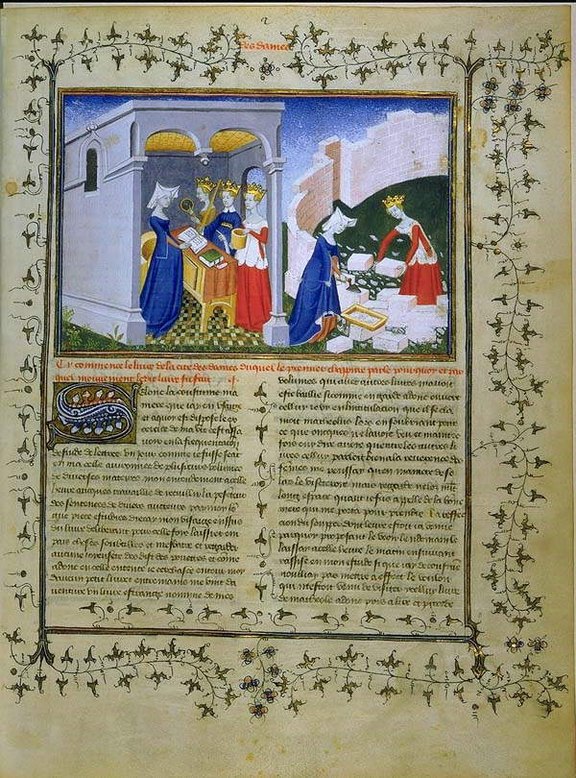 Des dames
Cy commence le livre de la cite des dames duquel le premier chapitre parle pourquoy et par
quel mouvement ledit livre fu fait . i .
Selonc la coustume
maniere que jay en usaige
et a quoy est dispose le ex
ercite de ma vie cest assa
voir en la frequentacion
destude de lettres. Un jour comme je fusse seant
en ma celle avironnee de plusieurs volumes
de diverses matieres. mon entendement a celle
heure auques travaillie de recueillir la pesenteur
des sentences de divers aucteurs par moy lon
gue piece estudiez drecay mon visaige ensus
du livre deliberant pour celle fois laissier en
paix choses soubtilles et mesbatre et regarder
aucune joyeusete des dis des poetes et comme
adonc en celle entente je cerchasse entour moy
daucun petit livret entre mains me vint da
venture un livre estrange nomme de mes
volumes qui avec autres livres mavoit
este baillie si comme en garde adonc ouvert
cellui je vy en lintitulacion que il se cla
moit matheolus lors en soubriant pour
ce que oncques ne lavoie veu et maintes
fois ouy dire avoie quentre les autres li
vres cellui parloit bien a la reverence des
femmes me pensay quen maniere de so
las le visiteroie mais regarde
long espace quant je fus appellee de la bonne
mere qui me porta pour prendre la reffec
cion du souper dont leure estoit ja venue
parquoy le veoir lendemain le
laissay a celle heure le matin ensuivant
rassise en mon estude si que jay de coustume
noubliay pas mettre a effect le vouloir
qui mestoit venu de visiter icellui livre
de matheole adonc pris a lire et proceder